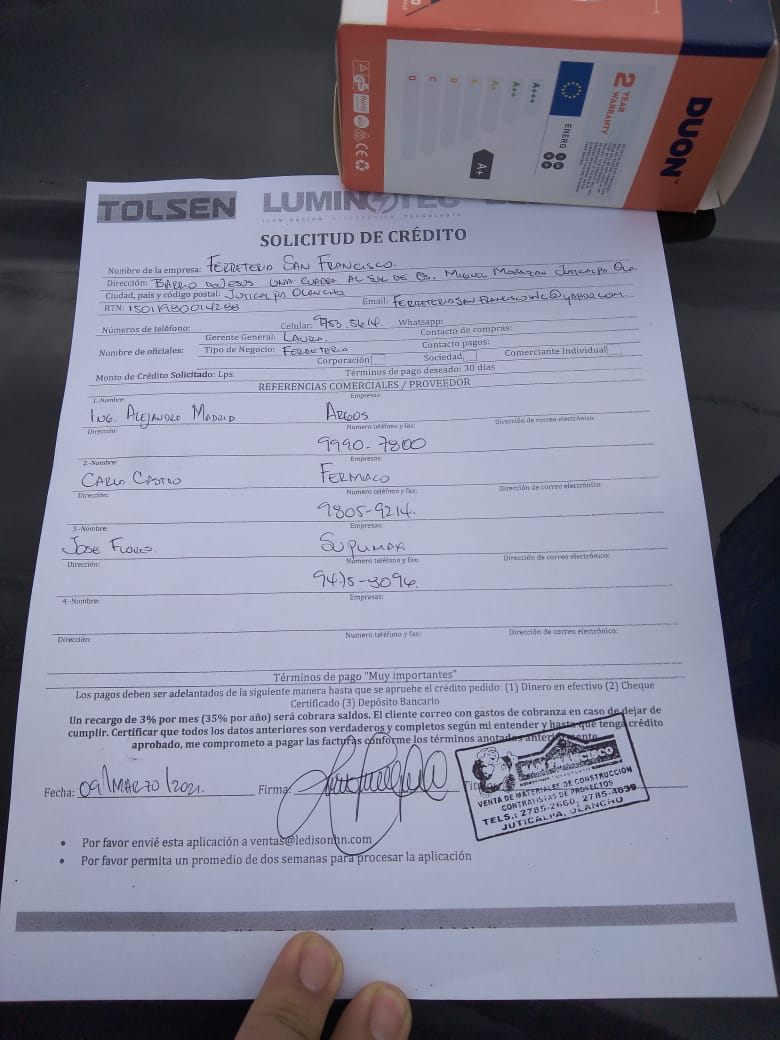 DUON™
2 YEAR WARRANTY
ENERG
A+++
A++
A+
A
B
C
D
A+
TOLSEN LUMINOTEC
ILUMINACION ELECTRICIDAD TECNOLOGIA
SOLICITUD DE CRÉDITO
Nombre de la empresa: FERRETERIA SAN FRANCISCO.
Dirección: BARRIO DE JESUS UNA CUADRA AL SUR DE ES. MIGUEL MORAZAN JUTICALPA OLA.
Ciudad, país y código postal: JUTICALPA OLANCHO
RTN: 15011980014288 Email: @yahoo.com
Números de teléfono: Celular: 9753-5614 Whatsapp:
Gerente General: LAURA. Contacto de compras:
Nombre de oficiales: Tipo de Negocio: FERRETERIA Contacto pagos:
Corporación Sociedad Comerciante Individual
Monto de Crédito Solicitado: Lps. Términos de pago deseado: 30 días
REFERENCIAS COMERCIALES / PROVEEDOR
1.-Nombre: Empresas:
ING. ALEJANDRO MADRID ARGOS
Dirección: Numero teléfono y fax: Dirección de correo electrónico:
9990-7800
2.-Nombre: Empresas:
CARLO CASTRO FERMACO
Dirección: Numero teléfono y fax: Dirección de correo electrónico:
9805-9214.
3.-Nombre: Empresas:
JOSE FLORES SUPUMAR
Dirección: Numero teléfono y fax: Dirección de correo electrónico:
9475-3096.
4.-Nombre: Empresas:
Dirección: Numero teléfono y fax: Dirección de correo electrónico:
Términos de pago "Muy importantes"
Los pagos deben ser adelantados de la siguiente manera hasta que se apruebe el crédito pedido: (1) Dinero en efectivo (2) Cheque
Certificado (3) Depósito Bancario
Un recargo de 3% por mes (35% por año) será cobrara saldos. El cliente correo con gastos de cobranza en caso de dejar de
cumplir. Certificar que todos los datos anteriores son verdaderos y completos según mi entender y hasta que tenga crédito
aprobado, me comprometo a pagar las facturas conforme los términos anotados anteriormente
Fecha: 09/MARZO/2021. Firma:
SAN FRANCISCO
VENTA DE MATERIALES DE CONSTRUCCIÓN
CONTRATISTAS DE PROYECTOS
TELS.: 2785-2660, 2785-4639
JUTICALPA, OLANCHO
• Por favor envié esta aplicación a ventas@ledisonhn.com
• Por favor permita un promedio de dos semanas para procesar la aplicación